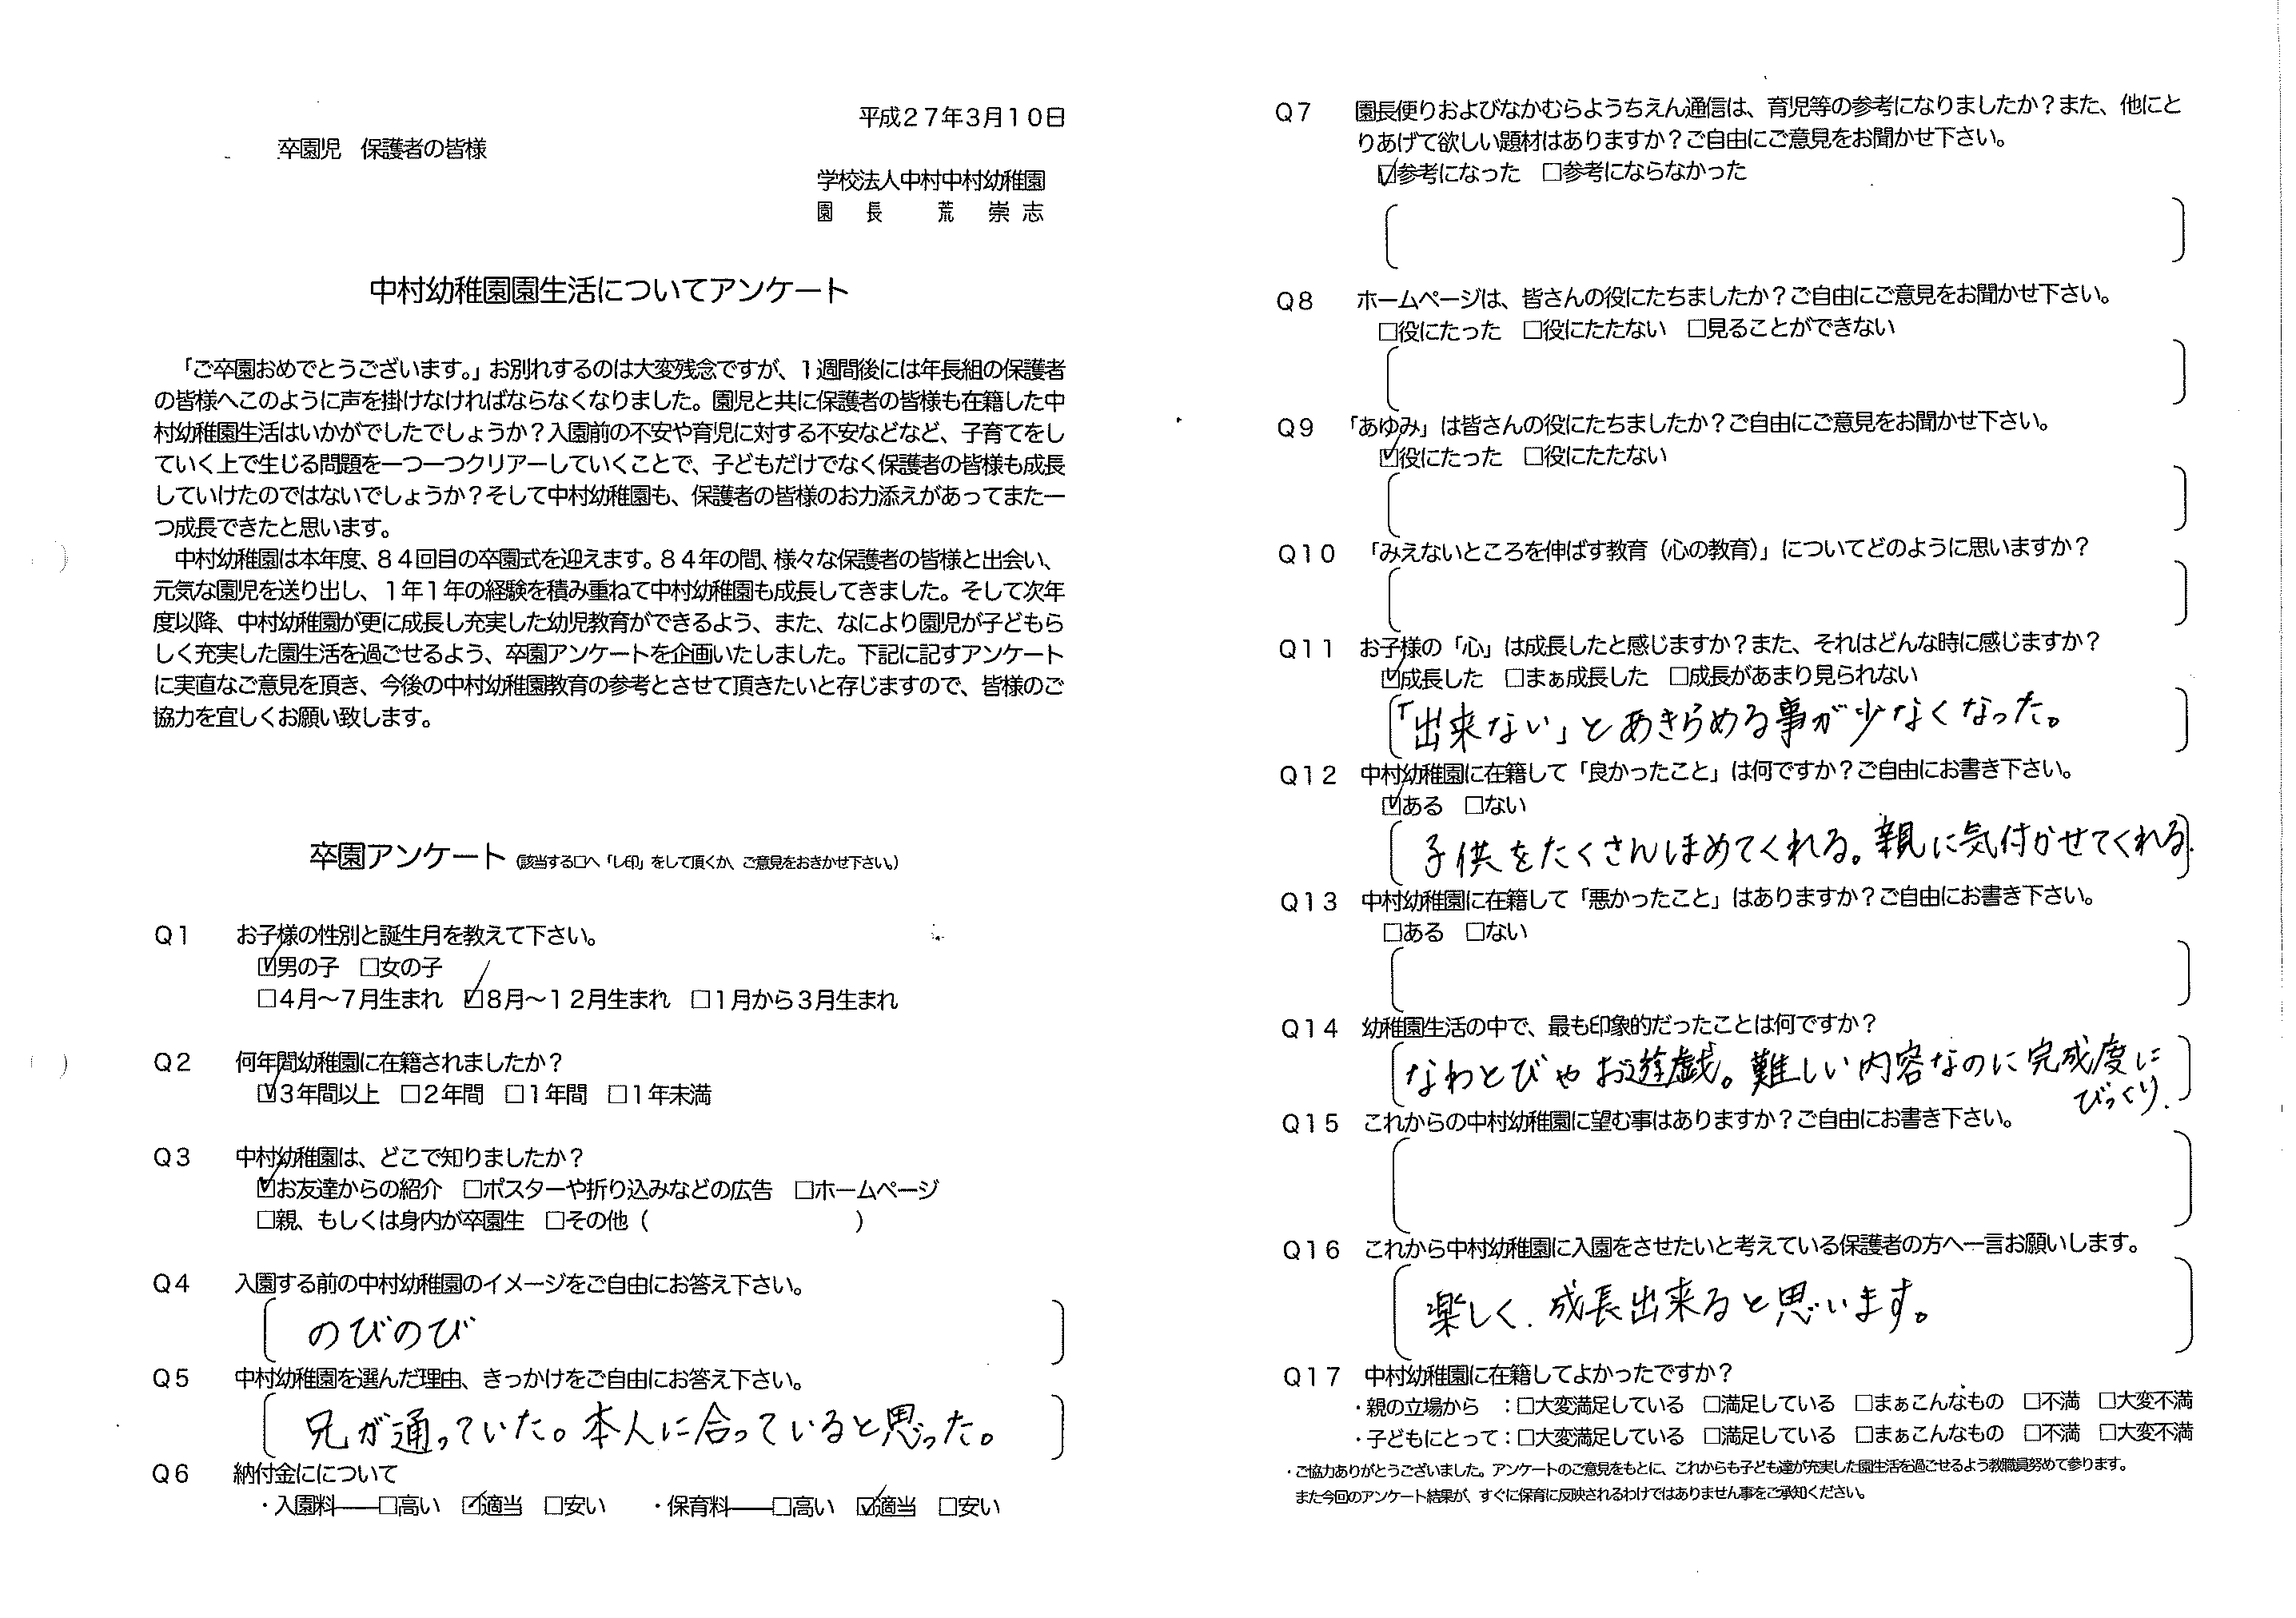 平成27年3月10日
卒園児　保護者の皆様
学校法人中村中村幼稚園
園　長　　荒　崇志
中村幼稚園園生活についてアンケート
「ご卒園おめでとうございます。」お別れするのは大変残念ですが、1週間後には年長組の保護者
の皆様へこのように声を掛けなければならなくなりました。園児と共に保護者の皆様も在籍した中
村幼稚園生活はいかがでしたでしょうか？入園前の不安や育児に対する不安などなど、子育てをし
ていく上で生じる問題を一つ一つクリアーしていくことで、子どもだけでなく保護者の皆様も成長
していけたのではないでしょうか？そして中村幼稚園も、保護者の皆様のお力添えがあってまた一
つ成長できたと思います。
中村幼稚園は本年度、84回目の卒園式を迎えます。84年の間、様々な保護者の皆様と出会い、
元気な園児を送り出し、1年1年の経験を積み重ねて中村幼稚園も成長してきました。そして次年
度以降、中村幼稚園が更に成長し充実した幼児教育ができるよう、また、なにより園児が子どもら
しく充実した園生活を過ごせるよう、卒園アンケートを企画いたしました。下記に記すアンケート
に実直なご意見を頂き、今後の中村幼稚園教育の参考とさせて頂きたいと存じますので、皆様のご
協力を宜しくお願い致します。
卒園アンケート（該当する□へ「レ印」をして頂くか、ご意見をおきかせ下さい。）
Q1　お子様の性別と誕生月を教えて下さい。
☑男の子　□女の子
□4月～7月生まれ　☑8月～12月生まれ　□1月から3月生まれ
Q2　何年間幼稚園に在籍されましたか？
☑3年間以上　□2年間　□1年間　□1年未満
Q3　中村幼稚園は、どこで知りましたか？
☑お友達からの紹介　□ポスターや折り込みなどの広告　□ホームページ
□親、もしくは身内が卒園生　□その他（　　　　　　　　　　）
Q4　入園する前の中村幼稚園のイメージをご自由にお答え下さい。
のびのび
Q5　中村幼稚園を選んだ理由、きっかけをご自由にお答え下さい。
兄が通っていた。本人に合っていると思った。
Q6　納付金にについて
・入園料――□高い　☑適当　□安い　　・保育料――□高い　☑適当　□安い
Q7　園長便りおよびなかむらようちえん通信は、育児等の参考になりましたか？また、他にと
りあげて欲しい題材はありますか？ご自由にご意見をお聞かせ下さい。
☑参考になった　□参考にならなかった
Q8　ホームページは、皆さんの役にたちましたか？ご自由にご意見をお聞かせ下さい。
□役にたった　□役にたたない　□見ることができない
Q9　「あゆみ」は皆さんの役にたちましたか？ご自由にご意見をお聞かせ下さい。
☑役にたった　□役にたたない
Q10　「みえないところを伸ばす教育（心の教育）」についてどのように思いますか？
Q11　お子様の「心」は成長したと感じますか？また、それはどんな時に感じますか？
☑成長した　□まぁ成長した　□成長があまり見られない
「出来ない」とあきらめる事が少なくなった。
Q12　中村幼稚園に在籍して「良かったこと」は何ですか？ご自由にお書き下さい。
☑ある　□ない
子供をたくさんほめてくれる。親に気付かせてくれる.
Q13　中村幼稚園に在籍して「悪かったこと」はありますか？ご自由にお書き下さい。
□ある　□ない
Q14　幼稚園生活の中で、最も印象的だったことは何ですか？
なわとびやお遊戯。難しい内容なのに完成度に
びっくり.
Q15　これからの中村幼稚園に望む事はありますか？ご自由にお書き下さい。
Q16　これから中村幼稚園に入園をさせたいと考えている保護者の方へ一言お願いします。
楽しく、成長出来ると思います。
Q17　中村幼稚園に在籍してよかったですか？
・親の立場から　：□大変満足している　□満足している　□まぁこんなもの　□不満　□大変不満
・子どもにとって：□大変満足している　□満足している　□まぁこんなもの　□不満　□大変不満
・ご協力ありがとうございました。アンケートのご意見をもとに、これからも子ども達が充実した園生活を過ごせるよう教職員努めて参ります。
また今回のアンケート結果が、すぐに保育に反映されるわけではありません事をご承知ください。